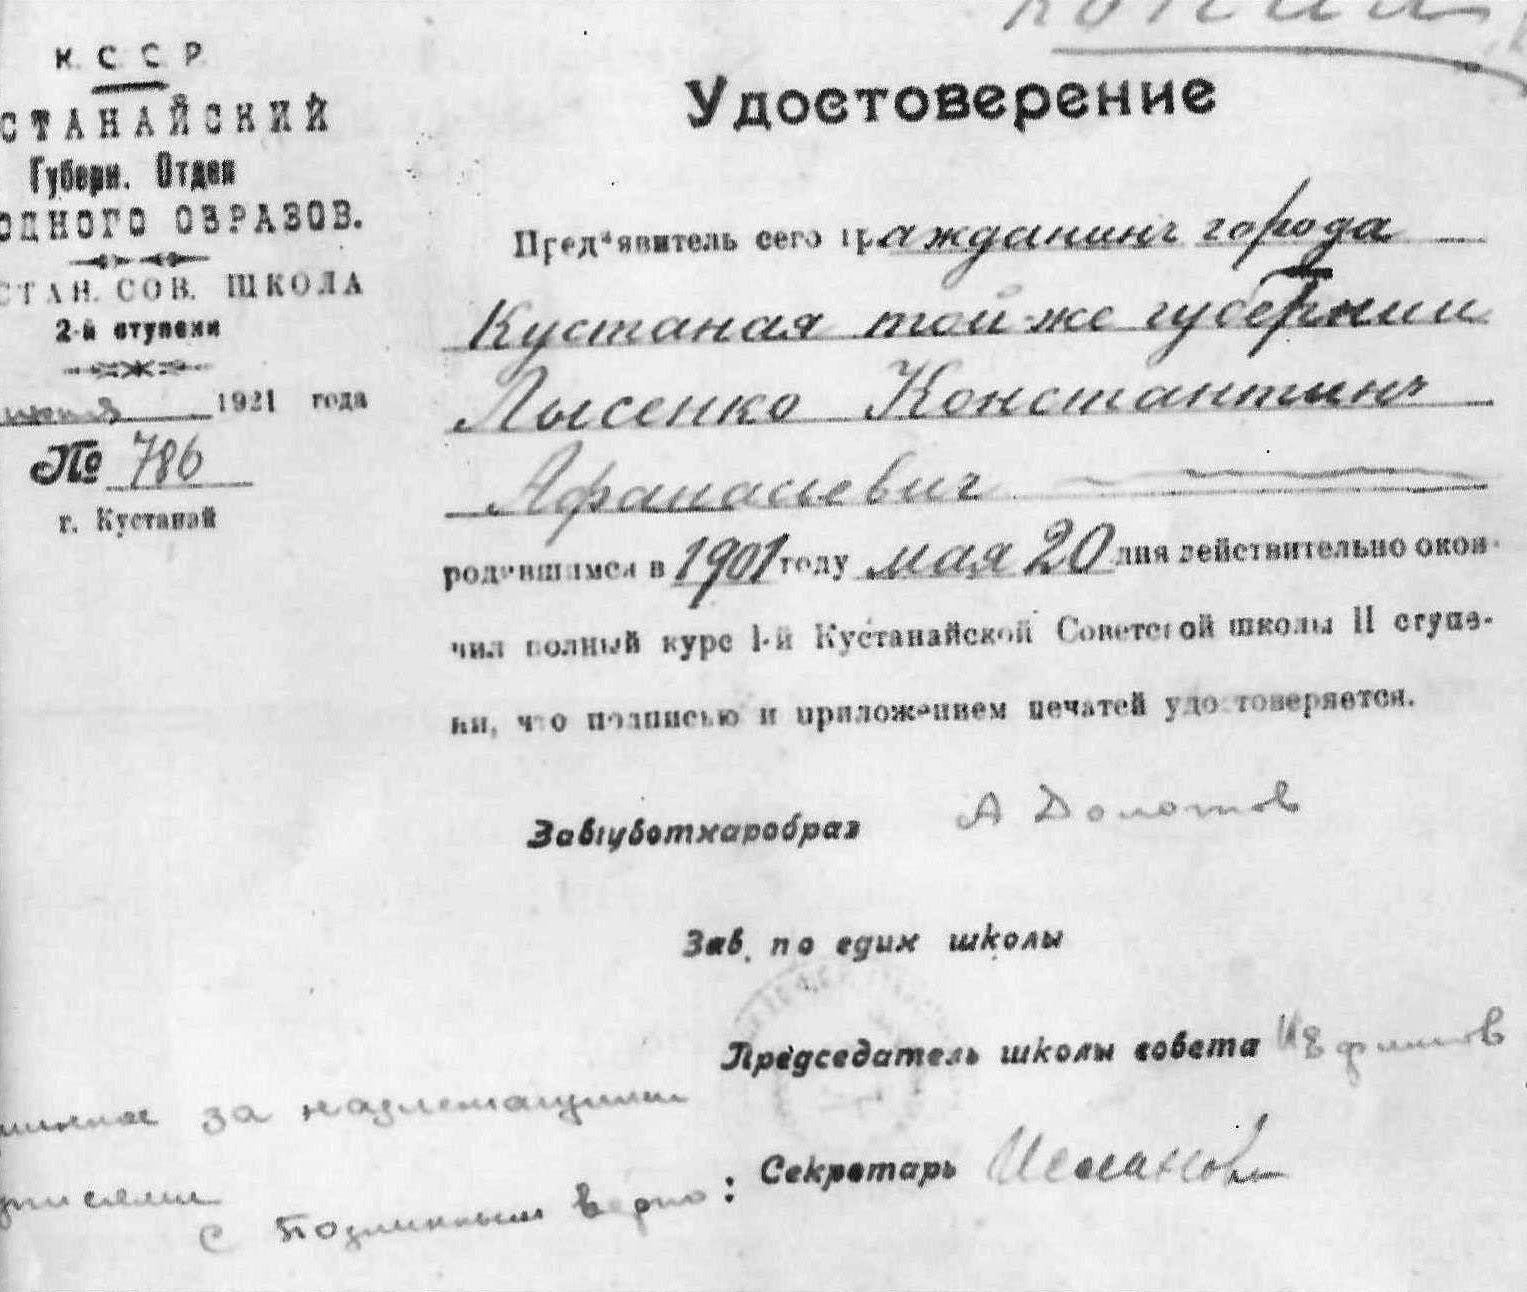 Копия
К. С. С. Р.
СТАНАЙСКИЙ
Губерн. Отдел
ОДНОГО ОБРАЗОВ.
СТАН. СОВ. ШКОЛА
2-й ступени
июня 1921 года
№ 786
г. Кустанай
Удостоверение
Пред'явитель сего гражданинъ города
Кустаная той-же губернии
Лысенко Константинъ
Афанасиевич
родившимся в 1901 году мая 20 дня действительно окон-
чил полный курс 1-й Кустанайской Советской школы II ступе-
ни, что подписью и приложением печатей удостоверяется.
Завгуботнаробраз А Долотов
Зав. по един школы
Председатель школы совета И Ефимов
Секретарь
за надлежащими
с подлинным верно: